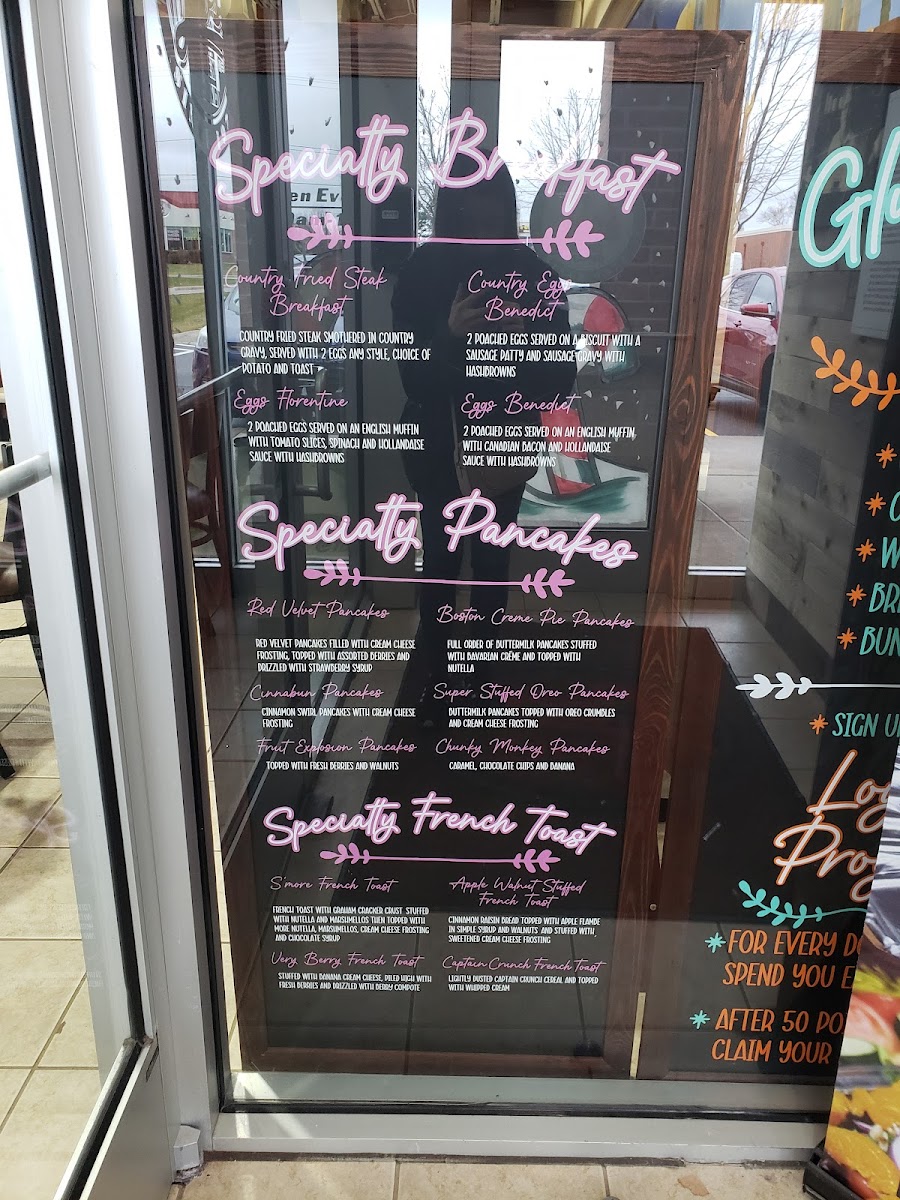 Specialty Breakfast
Country Fried Steak
Breakfast
COUNTRY FRIED STEAK SMOTHERED IN COUNTRY
GRAVY, SERVED WITH 2 EGGS ANY STYLE, CHOICE OF
POTATO AND TOAST
Country Eggs
Benedict
2 POACHED EGGS SERVED ON A BISCUIT WITH A
SAUSAGE PATTY AND SAUSAGE GRAVY WITH
HASHBROWNS
Eggs Florentine
2 POACHED EGGS SERVED ON AN ENGLISH MUFFIN
WITH TOMATO SLICES, SPINACH AND HOLLANDAISE
SAUCE WITH HASHBROWNS
Eggs Benedict
2 POACHED EGGS SERVED ON AN ENGLISH MUFFIN
WITH CANADIAN BACON AND HOLLANDAISE
SAUCE WITH HASHBROWNS
Specialty Pancakes
Red Velvet Pancakes
RED VELVET PANCAKES FILLED WITH CREAM CHEESE
FROSTING, TOPPED WITH ASSORTED BERRIES AND
DRIZZLED WITH STRAWBERRY SYRUP
Boston Creme Pie Pancakes
FULL ORDER OF BUTTERMILK PANCAKES STUFFED
WITH BAVARIAN CRÈME AND TOPPED WITH
NUTELLA
Cinnabun Pancakes
CINNAMON SWIRL PANCAKES WITH CREAM CHEESE
FROSTING
Super Stuffed Oreo Pancakes
BUTTERMILK PANCAKES TOPPED WITH OREO CRUMBLES
AND CREAM CHEESE FROSTING
Fruit Explosion Pancakes
TOPPED WITH FRESH BERRIES AND WALNUTS
Chunky Monkey Pancakes
CARAMEL, CHOCOLATE CHIPS AND BANANA
Specialty French Toast
S'more French Toast
FRENCH TOAST WITH GRAHAM CRACKER CRUST STUFFED
WITH NUTELLA AND MARSHMELLOS THEN TOPPED WITH
MORE NUTELLA, MARSHMELLOS, CREAM CHEESE FROSTING
AND CHOCOLATE SYRUP
Apple Walnut Stuffed
French Toast
CINNAMON RAISIN BREAD TOPPED WITH APPLE FLAMBE
IN SIMPLE SYRUP AND WALNUTS AND STUFFED WITH
SWEETENED CREAM CHEESE FROSTING
Very Berry French Toast
STUFFED WITH BANANA CREAM CHEESE, PILED HIGH WITH
FRESH BERRIES AND DRIZZLED WITH BERRY COMPOTE
Captain Crunch French Toast
LIGHTLY DUSTED CAPTAIN CRUNCH CEREAL AND TOPPED
WITH WHIPPED CREAM
SIGN U
FOR EVERY DO
SPEND YOU E
AFTER 50 PO
CLAIM YOUR